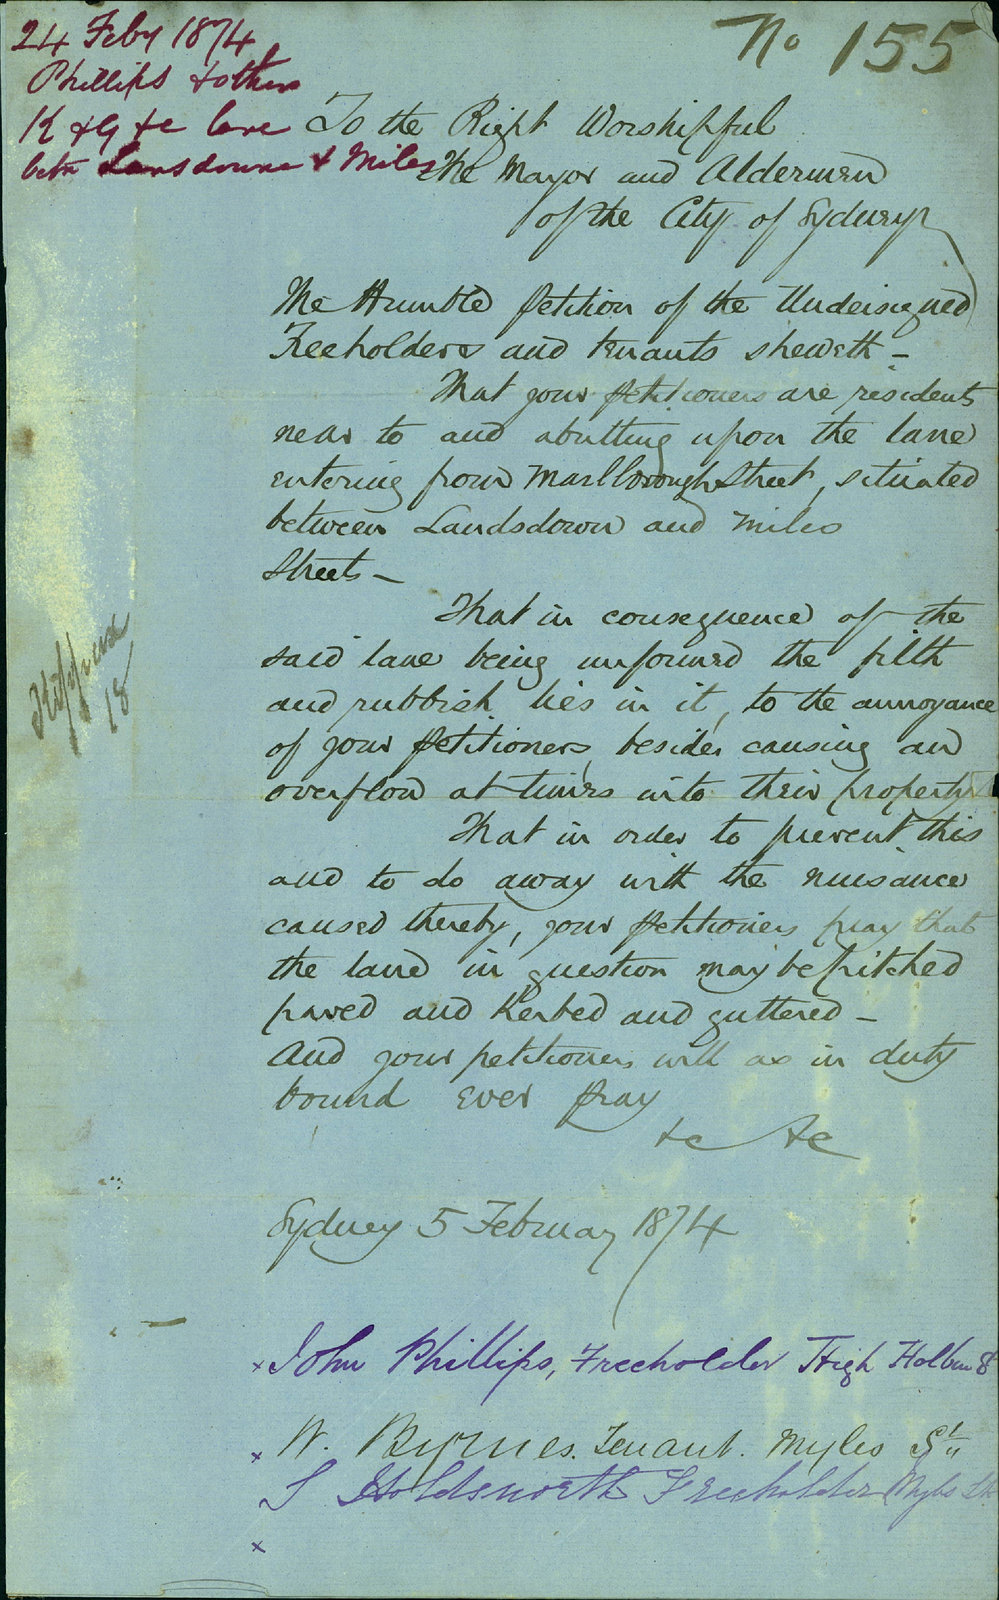 24 Feby 1874
Phillips & others
K & G &c lane
betn Lansdowne & Miles
No 155
To the Right Worshipful
The Mayor and Aldermen
of the City of Sydney
The Humble Petition of the Undersigned
Freeholders and tenants sheweth -
That your petitioners are residents
near to and abutting upon the lane
entering from Marlborough Street, situated
between Landsdown and Miles
Streets -
That in consequence of the
said lane being unformed the filth
and rubbish lies in it, to the annoyance
of your petitioners, besides causing an
overflow at times into their property
That in order to prevent this
and to do away with the nuisance
caused thereby, your petitioners pray that
the land in question may be pitched
paved and Kerbed and guttered -
And your petitioners will as in duty
bound ever pray
&c &c
Kippax
18
Sydney 5 February 1874
x John Phillips, Freeholder High Holbn St
x W. Byrnes. Tenant. Myles St
S Holdsworth Freeholder Myles St
x